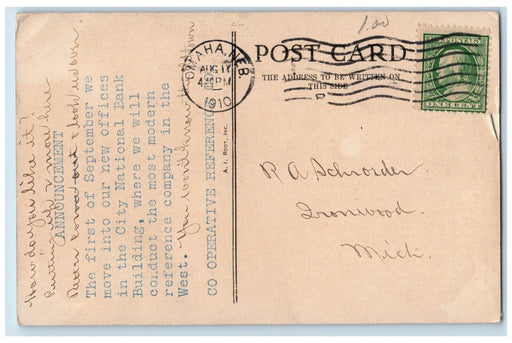 1.00
POST CARD
THE ADDRESS TO BE WRITTEN ON
THIS SIDE
OMAHA, NEB.
AUG 11
4 30 PM
1910
U.S. POSTAGE
ONE CENT
R A Schroeder.
Ironwood.
Mich.
A. I. Root, Inc.
How do you like it?
Putting up 2 more here
down & look us over
ANNOUNCEMENT
The first of September we
move into our new offices
in the City National Bank
Building, where we will
conduct the most modern
reference company in the
West. You wont know
CO-OPERATIVE REFERENCE